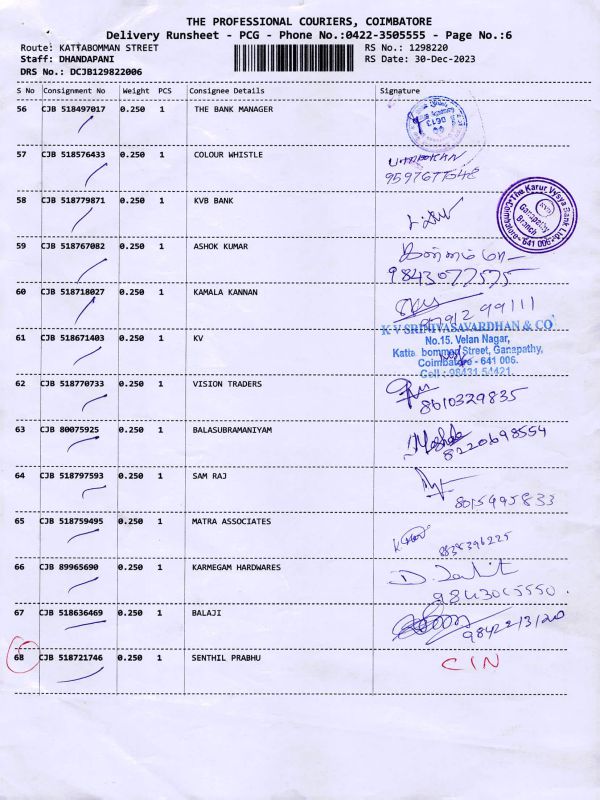 THE PROFESSIONAL COURIERS, COIMBATORE
Delivery Runsheet - PCG - Phone No.:0422-3505555 - Page No.:6
Route: KATTABOMMAN STREET RS No.: 1298220
Staff: DHANDAPANI RS Date: 30-Dec-2023
DRS No.: DCJB129822006
S No Consignment No Weight PCS Consignee Details Signature
56 CJB 518497017 0.250 1 THE BANK MANAGER
57 CJB 518576433 0.250 1 COLOUR WHISTLE
9597677548
58 CJB 518779871 0.250 1 KVB BANK
The Karur Vysya Bank Ltd.
KVB
Ganapathy
Branch
Coimbatore - 641 006.
59 CJB 518767082 0.250 1 ASHOK KUMAR
9843077575
60 CJB 518718027 0.250 1 KAMALA KANNAN
9791299111
61 CJB 518671403 0.250 1 KV
K V SRINIVASAVARDHAN & CO
No.15. Velan Nagar,
Katta bomman Street, Ganapathy,
Coimbatore - 641 006.
Cell : 98431 54421
62 CJB 518770733 0.250 1 VISION TRADERS
8610329835
63 CJB 80075925 0.250 1 BALASUBRAMANIYAM
8220698554
64 CJB 518797593 0.250 1 SAM RAJ
8015995833
65 CJB 518759495 0.250 1 MATRA ASSOCIATES
8838396225
66 CJB 89965690 0.250 1 KARMEGAM HARDWARES
9843065550
67 CJB 518636469 0.250 1 BALAJI
68 CJB 518721746 0.250 1 SENTHIL PRABHU CIN